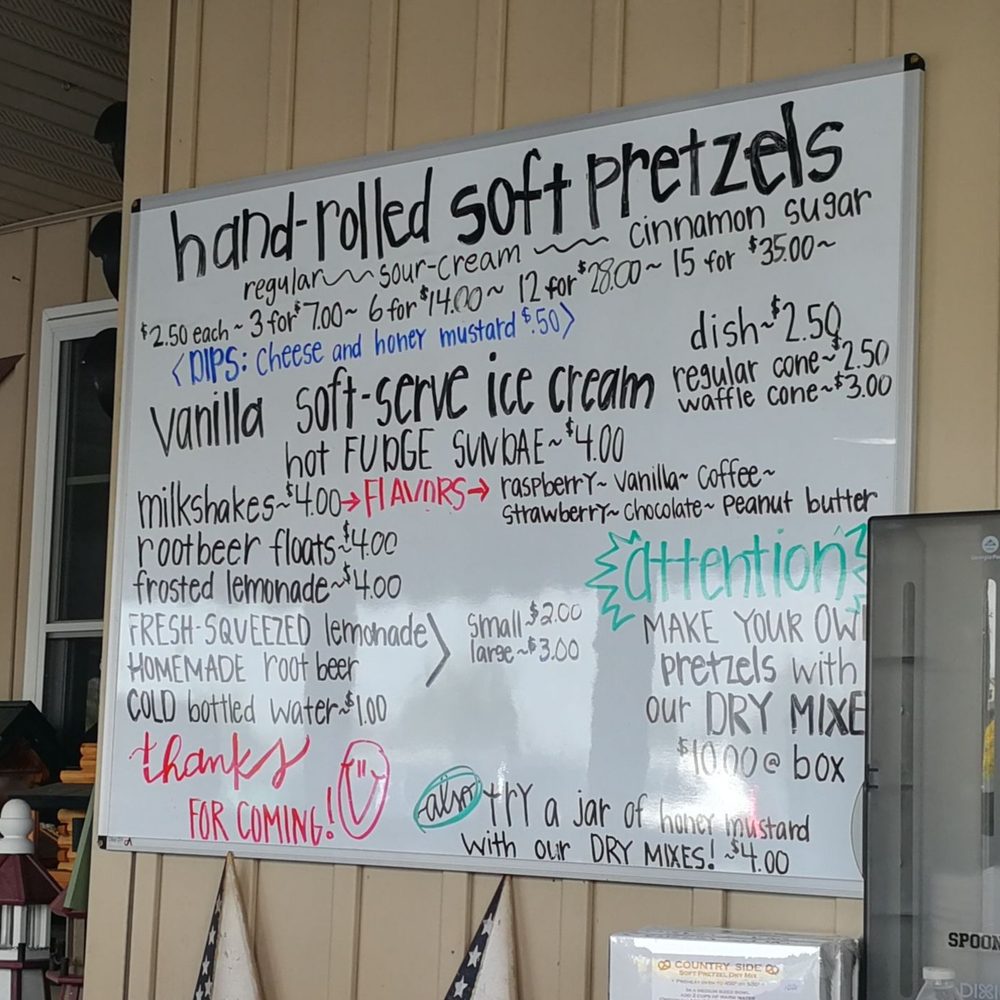 hand-rolled soft pretzels
regular ~ sour-cream ~ cinnamon sugar
$2.50 each ~ 3 for $7.00 ~ 6 for $14.00 ~ 12 for $28.00 ~ 15 for $35.00 ~
<DIPS: cheese and honey mustard $.50>
dish ~ $2.50
regular cone ~ $2.50
waffle cone ~ $3.00
vanilla soft-serve ice cream
hot FUDGE SUNDAE ~ $4.00
milkshakes ~ $4.00 → FLAVORS → raspberry ~ vanilla ~ coffee ~
strawberry ~ chocolate ~ peanut butter
rootbeer floats ~ $4.00
frosted lemonade ~ $4.00
FRESH-SQUEEZED lemonade
HOMEMADE root beer
small ~ $2.00
large ~ $3.00
COLD bottled water ~ $1.00
thanks
FOR COMING!
attention!
MAKE YOUR OW
pretzels with
our DRY MIXE
$10.00 @ box
also try a jar of honey mustard
with our DRY MIXES! ~ $4.00
COUNTRY SIDE
SOFT PRETZEL DRY MIX
SPOON
DIXI